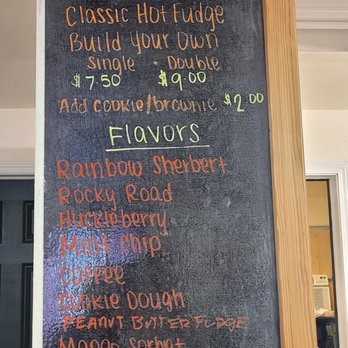 Classic Hot Fudge
Build Your Own
Single · Double
$7.50 $9.00
Add cookie/brownie $2.00
Flavors
Rainbow Sherbert
Rocky Road
Huckleberry
Mint Chip
Coffee
Cookie Dough
Peanut Butter Fudge
Mango Sorbet